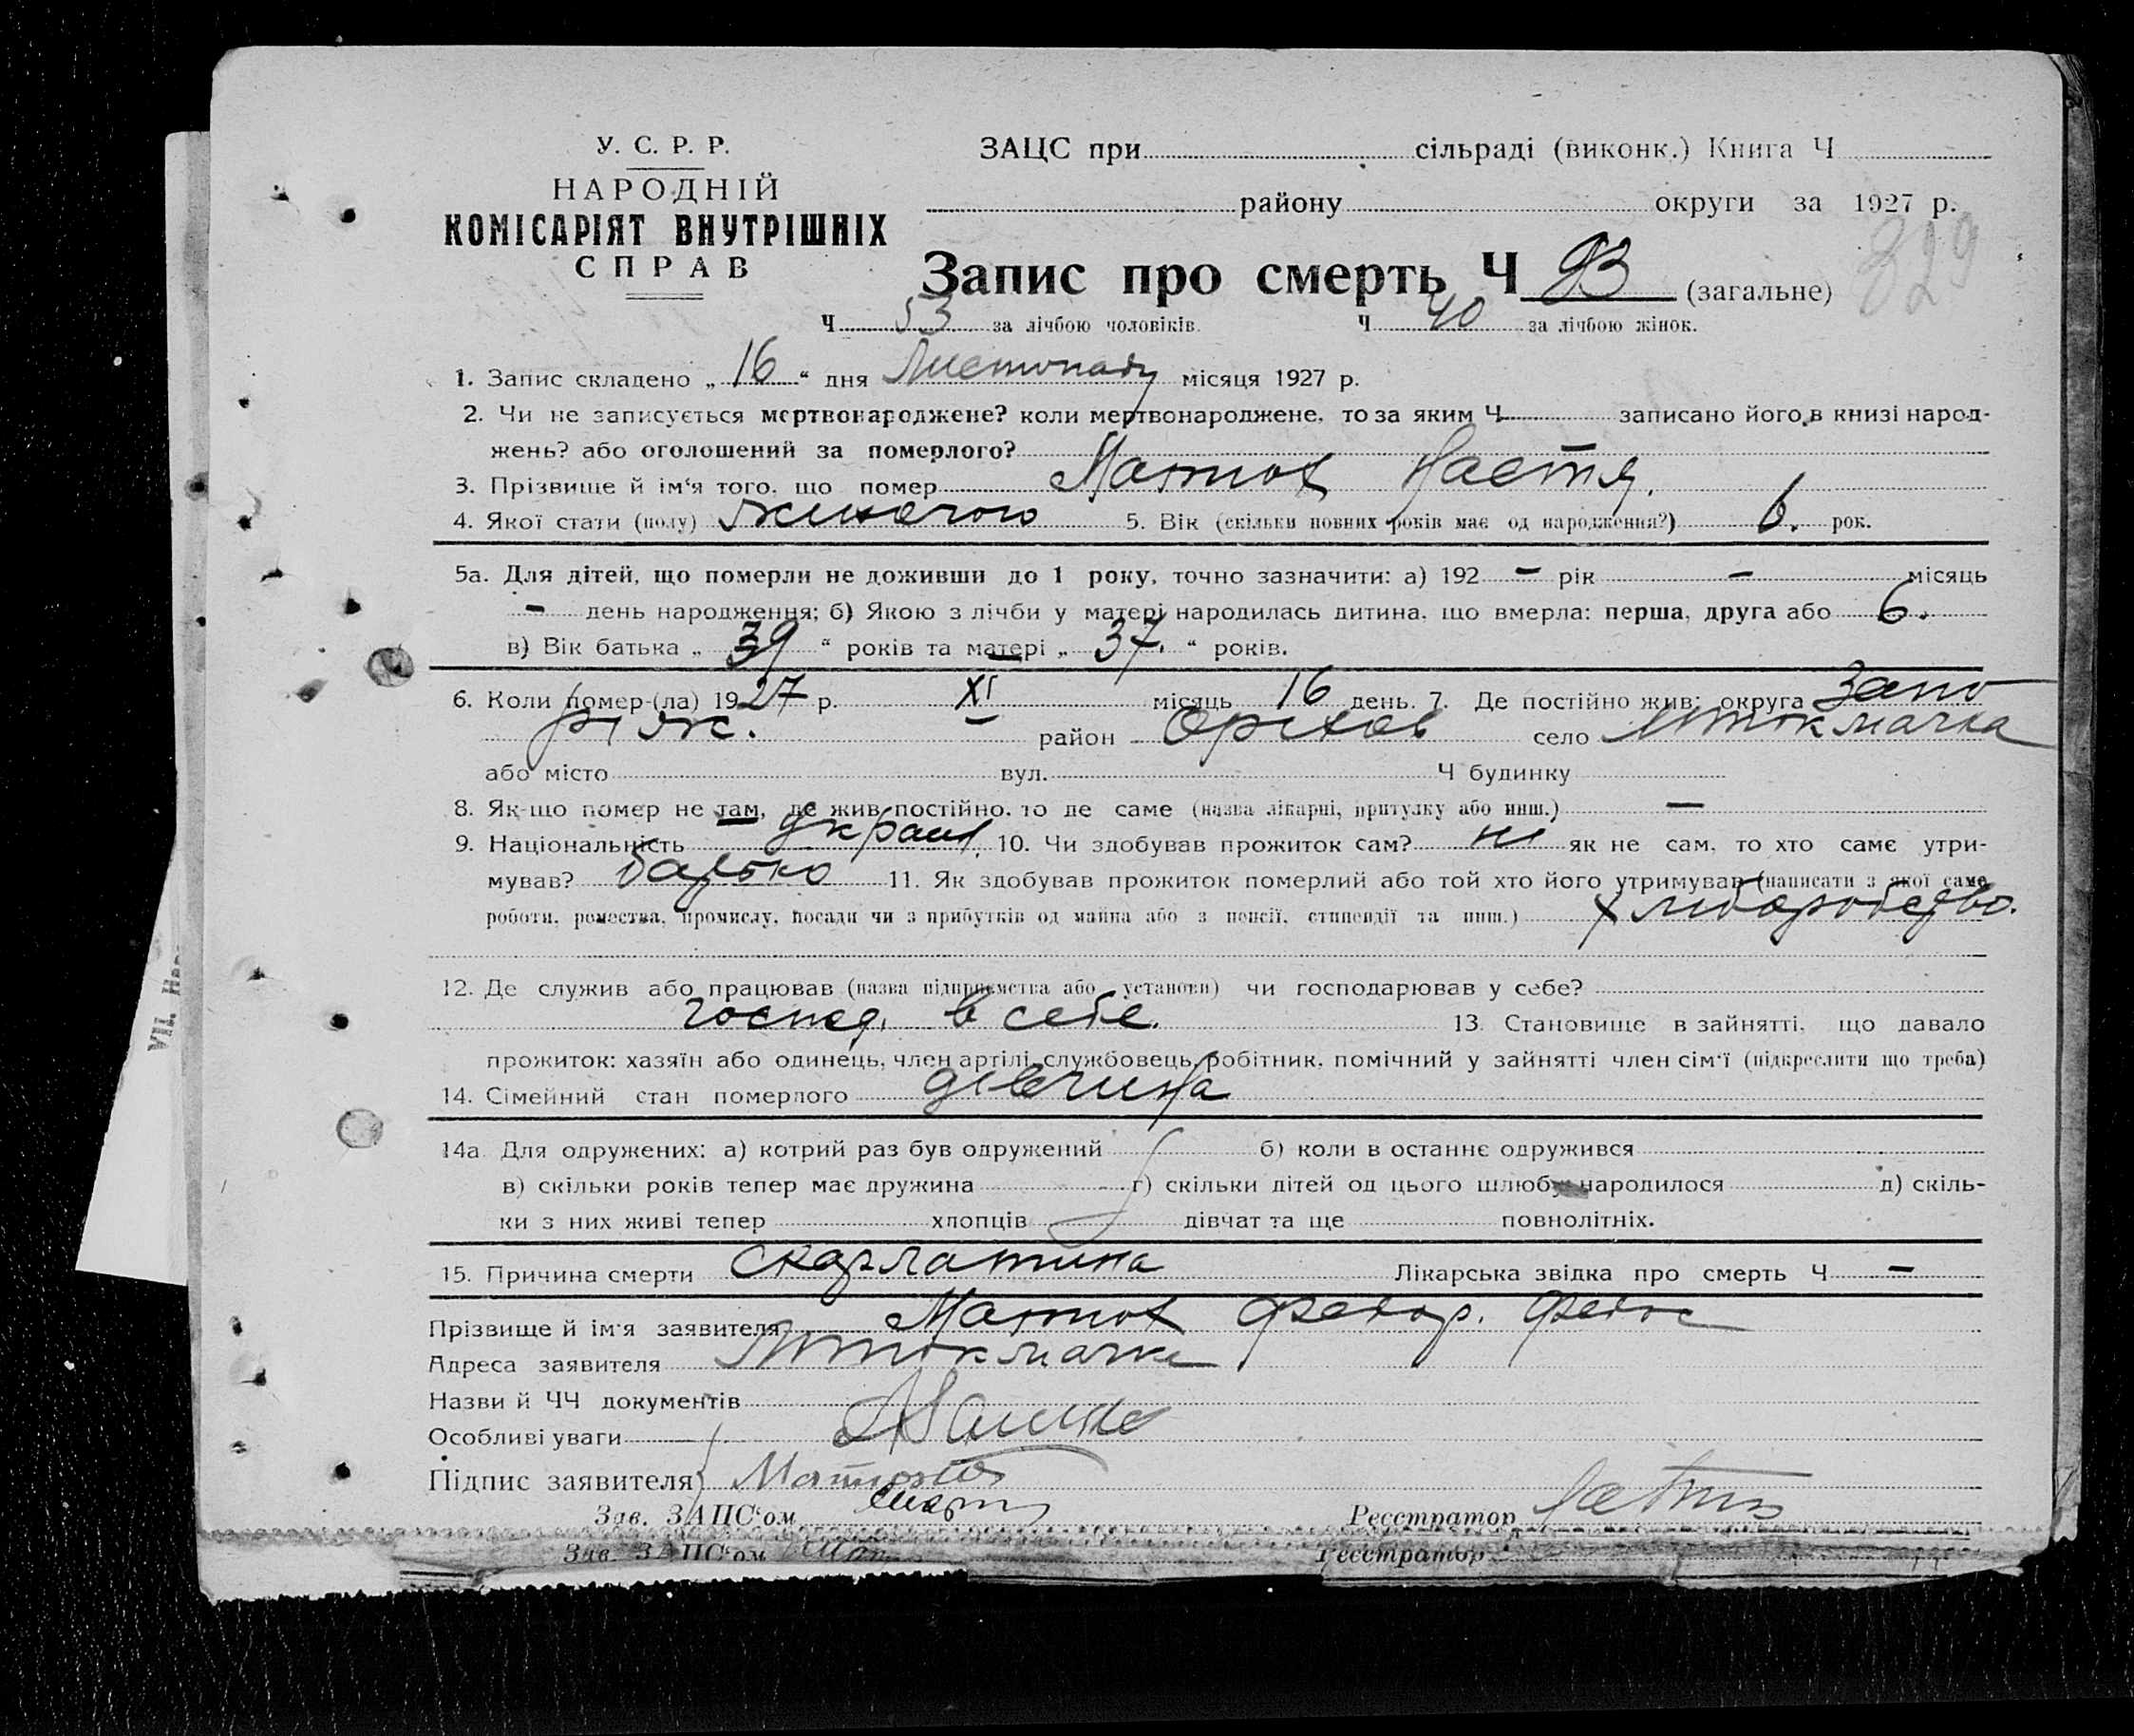 У. С. Р. Р.
НАРОДНІЙ
КОМІСАРІЯТ ВНУТРІШНІХ
СПРАВ
ЗАЦС при сільраді (виконк.) Книга Ч
району округи за 1927 р.
829
Запис про смерть Ч 93 (загальне)
Ч 53 за лічбою чоловіків. Ч 40 за лічбою жінок.
1. Запис складено „ 16 “ дня Листопаду місяця 1927 р.
2. Чи не записується мертвонароджене? коли мертвонароджене, то за яким Ч записано його в книзі народ-
жень? або оголошений за померлого?
3. Прізвище й ім‘я того, що помер Матюх Настя.
4. Якої стати (полу) жиночого 5. Вік (скільки повних років має од народження?) 6. рок.
5а. Для дітей, що померли не доживши до 1 року, точно зазначити: а) 192 – рік – місяць
– день народження; б) Якою з лічби у матері народилась дитина, що вмерла: перша, друга або 6.
в) Вік батька „ 39 “ років та матері „ 37. “ років.
6. Коли помер-(ла) 1927 р. XI місяць 16 день. 7. Де постійно жив: округа Запо
ріж. район Оріхов село Мтокмачка
або місто вул. Ч будинку
8. Як-що помер не там, де жив постійно, то де саме (назва лікарні, притулку або инш.) –
9. Національність украин. 10. Чи здобував прожиток сам? ні як не сам, то хто саме утри-
мував? батько 11. Як здобував прожиток померлий або той хто його утримував (написати з якої саме
роботи, ремества, промислу, посади чи з прибутків од майна або з пенсії, стипендії та инш.) хліборобство.
12. Де служив або працював (назва підприємства або установи) чи господарював у себе?
господ. в себе. 13. Становище в зайнятті, що давало
прожиток: хазяїн або одинець, член артілі, службовець, робітник, помічний у зайнятті член сім‘ї (підкреслити що треба)
14. Сімейний стан померлого дівчина
14а. Для одружених: а) котрий раз був одружений б) коли в останнє одружився
в) скільки років тепер має дружина г) скільки дітей од цього шлюбу народилося д) скіль-
ки з них живі тепер хлопців дівчат та ще повнолітніх.
15. Причина смерти Скарлатина Лікарська звідка про смерть Ч –
Прізвище й ім‘я заявителя Матюх Федор. Федос
Адреса заявителя Мтокмачка
Назви й ЧЧ документів
Особливі уваги
Підпис заявителя
Зав. ЗАПС‘ом Реєстратор
Зав. ЗАПС‘ом Реєстратор
VII. Нар.